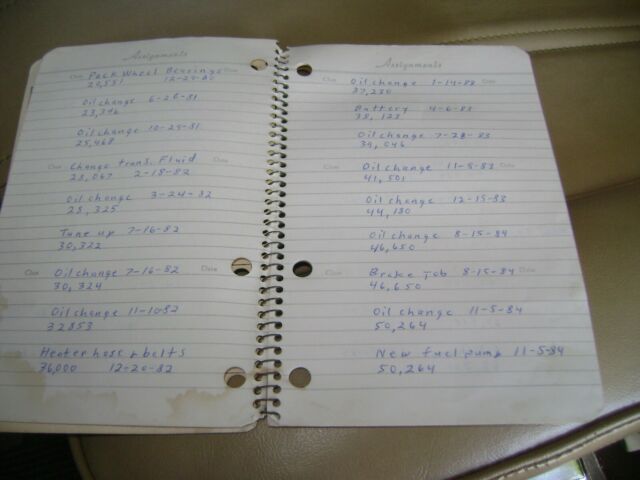 Assignments
Class Pack Wheel Bearings Date
22,551 12-20-80
Oil change 6-26-81
23,746
Oil change 10-25-81
25,468
Class Change trans. Fluid Date
28,067 2-18-82
Oil change 3-24-82
28,325
Tune up 7-16-82
30,322
Class Oil change 7-16-82 Date
30,324
Oil change 11-10-82
32853
Heater hose & belts
36,000 12-20-82
Assignments
Class Oil change 1-14-83 Date
37,230
Battery 4-6-83
38,123
Oil change 7-28-83
39,046
Class Oil change 11-5-83 Date
41,501
Oil change 12-15-83
44,180
Oil change 8-15-84
46,650
Class Brake Job 8-15-84 Date
46,650
Oil change 11-5-84
50,264
New fuel pump 11-5-84
50,264